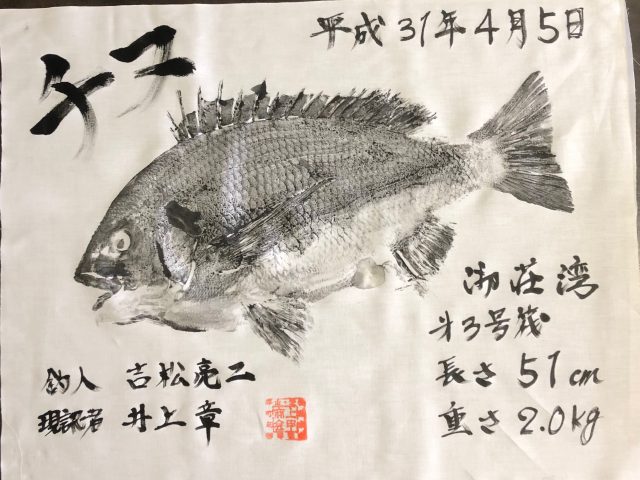 チヌ
平成31年4月5日
御荘湾
才3号筏
長さ 51cm
重さ 2.0kg
釣人 吉松亮二
現認者 井上章